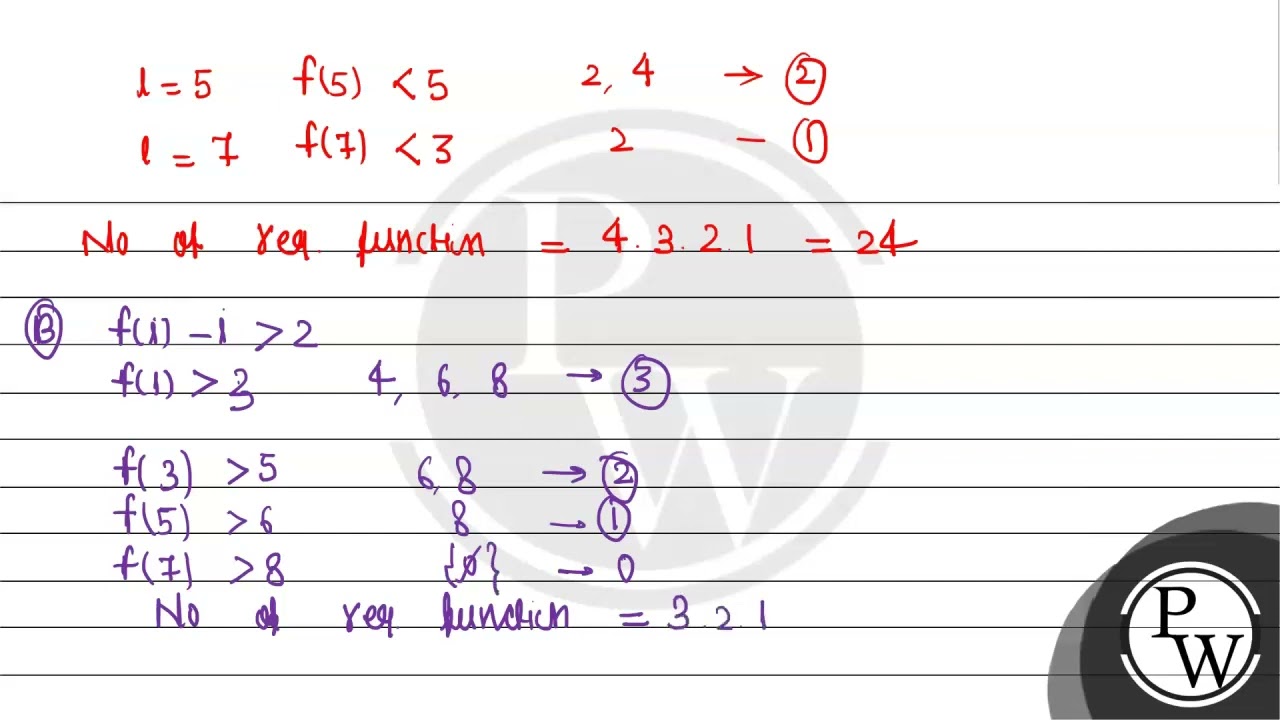 i = 5 f(5) < 5 2, 4 → 2
i = 7 f(7) < 3 2 – 1
No of req. function = 4.3.2.1 = 24
B f(i) – i > 2
f(1) > 3 4, 6, 8 → 3
f(3) > 5 6, 8 → 2
f(5) > 6 8 → 1
f(7) > 8 {ø} → 0
No of req function = 3.2.1
PW
PW